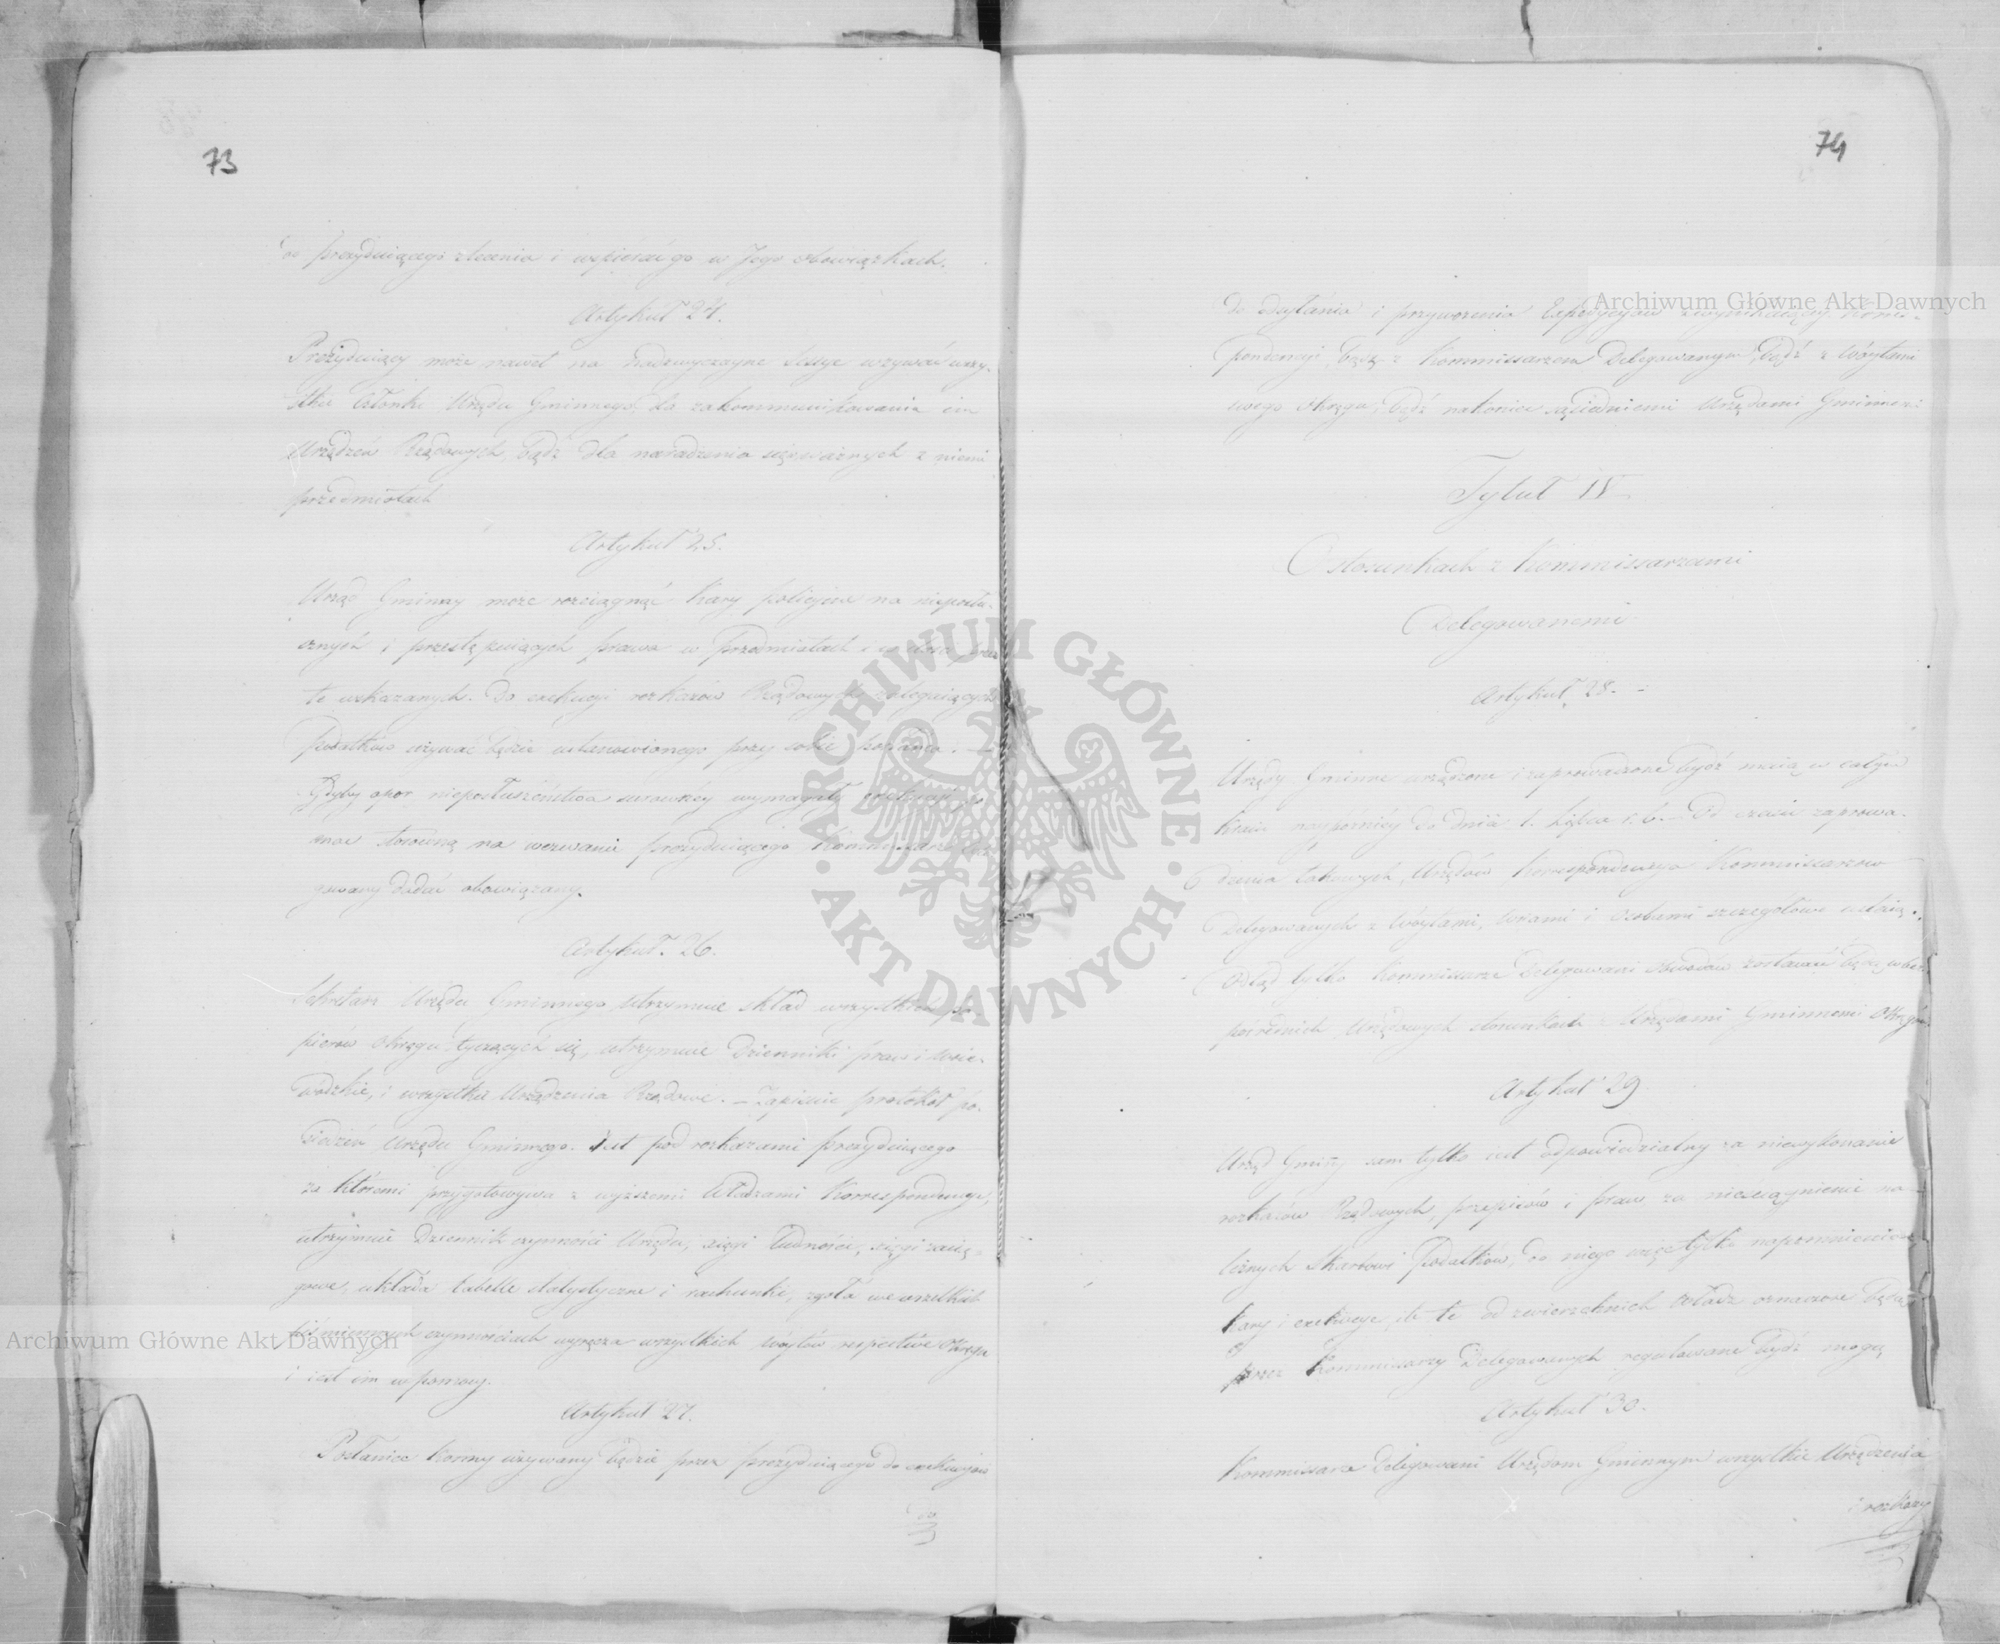 73
do prezyduiącego zlecenia i wspierać go w Jego obowiązkach.
Artykuł 24.
Prezyduiący może nawet na nadzwyczayne Sessye wzywać wszy-
stkie Członki Urzędu Gminnego, dla zakommunikowania im
Urządzeń Rządowych, bądź dla naradzenia się w ważnych z niemi
przedmiotach
Artykuł 25.
Urząd Gminny może rozciągnąć kary policyine na nieposłu-
sznych i przestępuiących prawa w przedmiotach i
te wskazanych. Do exekucyi rozkazów Rządowych, zalegaiących
Podatków używać będzie ustanowionego przy sobie posłańca. —
Gdyby opór nieposłuszeństwa surowszey wymagał exekucyi po-
moc stosowną na wezwanie prezyduiącego Kommissarz Dele-
gowany dodać obowiązany.
Artykuł 26.
Sekretarz Urzędu Gminnego utrzymuie skład wszystkich pa-
pierów Okręgu tyczących się, utrzymuie Dzienniki praw i Woie-
wódzkie, i wszystkie Urządzenia Rządowe. — Zapisuie protokół po-
siedzeń Urzędu Gminnego. Jest pod rozkazami prezyduiącego
za któremi przygotowywa z wyższemi Władzami Korrespondencye,
utrzymuie Dziennik czynności Urzędu, xięgi Ludności, xięgi zacią-
gowe, układa tabelle statystyczne i rachunki, zgoła we wszelkich
piśmiennych czynnościach wyręcza wszystkich Wóytów respective Okręgu
i iest im w pomocy.
Artykuł 27.
Posłaniec konny używany będzie przez prezyduiącego do exekucyiów
do
74
do odsyłania i przywożenia Expedycyiów z wynikaiącey korres-
pondencyi, bądź z Kommissarzem Delegowanym, bądź z Wóytami
swego okręgu, bądź nakoniec sąsiedniemi Urzędami Gminnemi
Tytuł IV
O stosunkach z Kommissarzami
Delegowanemi
Artykuł 28.
Urzędy Gminne urządzone i zaprowadzone bydź maią w całym
Kraiu naypóźniey do dnia 1. Lipca r. b. — Od czasu zaprowa-
dzenia takowych Urzędów Korrespondencya Kommissarzow
Delegowanych z Wóytami, i Osobami szczegółowe ustaią.
Odtąd tylko Kommissarze Delegowani obwodów zostawać będą w bez-
pośrednich Urzędowych stosunkach z Urzędami Gminnemi Okręgów
Artykuł 29
Urząd Gminny sam tylko iest odpowiedzialny za niewykonanie
rozkazów Rządowych, przepisów i praw, za nieściągnienie na-
leżnych Skarbowi Podatków, do niego więc tylko napomnienia
kary i exekucye, ile te od zwierzchnich władz oznaczone będą
przez Kommissarzy Delegowanych regulowane bydź mogą
Artykuł 30.
Kommissarze Delegowani Urzędom Gminnym wszystkie Urządzenia
i rozkazy
Archiwum Główne Akt Dawnych
Archiwum Główne Akt Dawnych
ARCHIWUM GŁÓWNE
AKT DAWNYCH